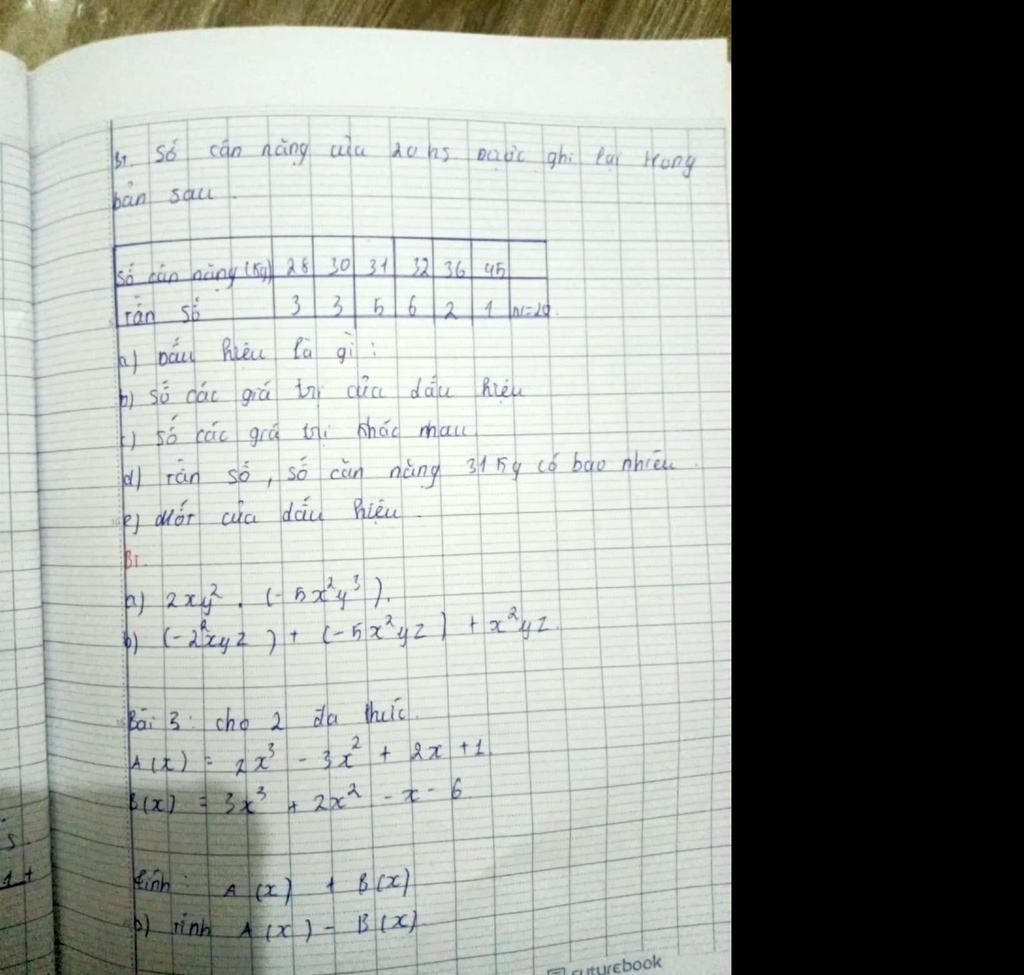 B1. Số cân nặng của 20 hs được ghi lại trong
bản sau.
Số cân nặng (kg) 28 30 31 32 36 45
Tần số 3 3 5 6 2 1 N=20
a) Dấu hiệu là gì:
b) Số các giá trị của dấu hiệu
c) Số các giá trị khác nhau
d) Tần số, số cân nặng 31kg có bao nhiêu
e) Mốt của dấu hiệu.
B2.
a) 2xy² . (-5x²y³).
b) (-2²xyz) + (-5x²yz) + x²yz.
Bài 3: cho 2 đa thức.
A(x) = 2x³ - 3x² + 2x + 1
B(x) = 3x³ + 2x² - x - 6
tính: A(x) + B(x)
b) Tính A(x) - B(x)
futurebook